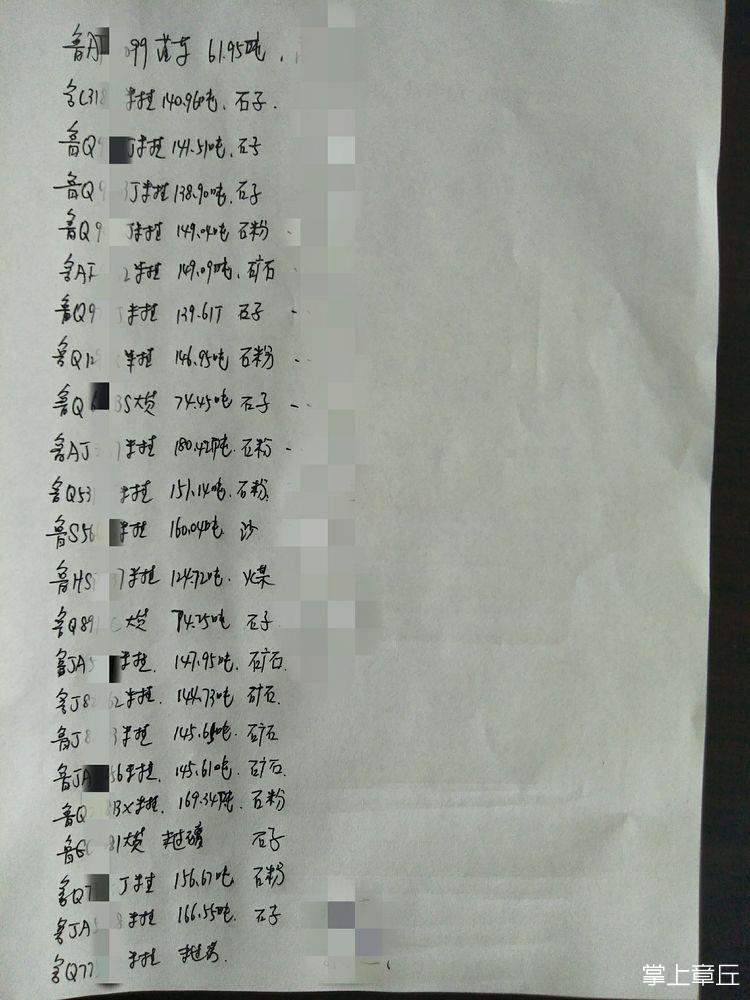 鲁A 099 黄车 61.95吨.
鲁C318 半挂 140.96吨. 石子.
鲁Q9 J半挂 141.51吨. 石子
鲁Q9 3J半挂 138.90吨. 石子
鲁Q9 J半挂 149.04吨 石粉
鲁AF 2半挂 149.09吨. 矿石
鲁Q9 J半挂 139.61T 石子
鲁Q12 半挂 146.95吨 石粉
鲁Q 3S大货 74.45吨 石子
鲁AJ 7半挂 180.42吨. 石粉
鲁Q53 半挂 151.14吨. 石粉.
鲁S56 半挂 160.04吨 沙
鲁HS 37半挂 124.72吨. 煤
鲁Q891 C大货 74.25吨 石子
鲁JA5 半挂. 147.95吨. 矿石.
鲁J8 62半挂 144.73吨 矿石.
鲁J8 3半挂 145.65吨 矿石
鲁JA 56半挂. 145.61吨. 矿石.
鲁Q 8BX半挂. 169.34吨. 石粉
鲁 81大货 未过磅 石子
鲁Q7 J半挂 156.67吨 石粉
鲁JA5 8半挂 166.55吨. 石子
鲁Q77 半挂 未过磅.
掌上章丘